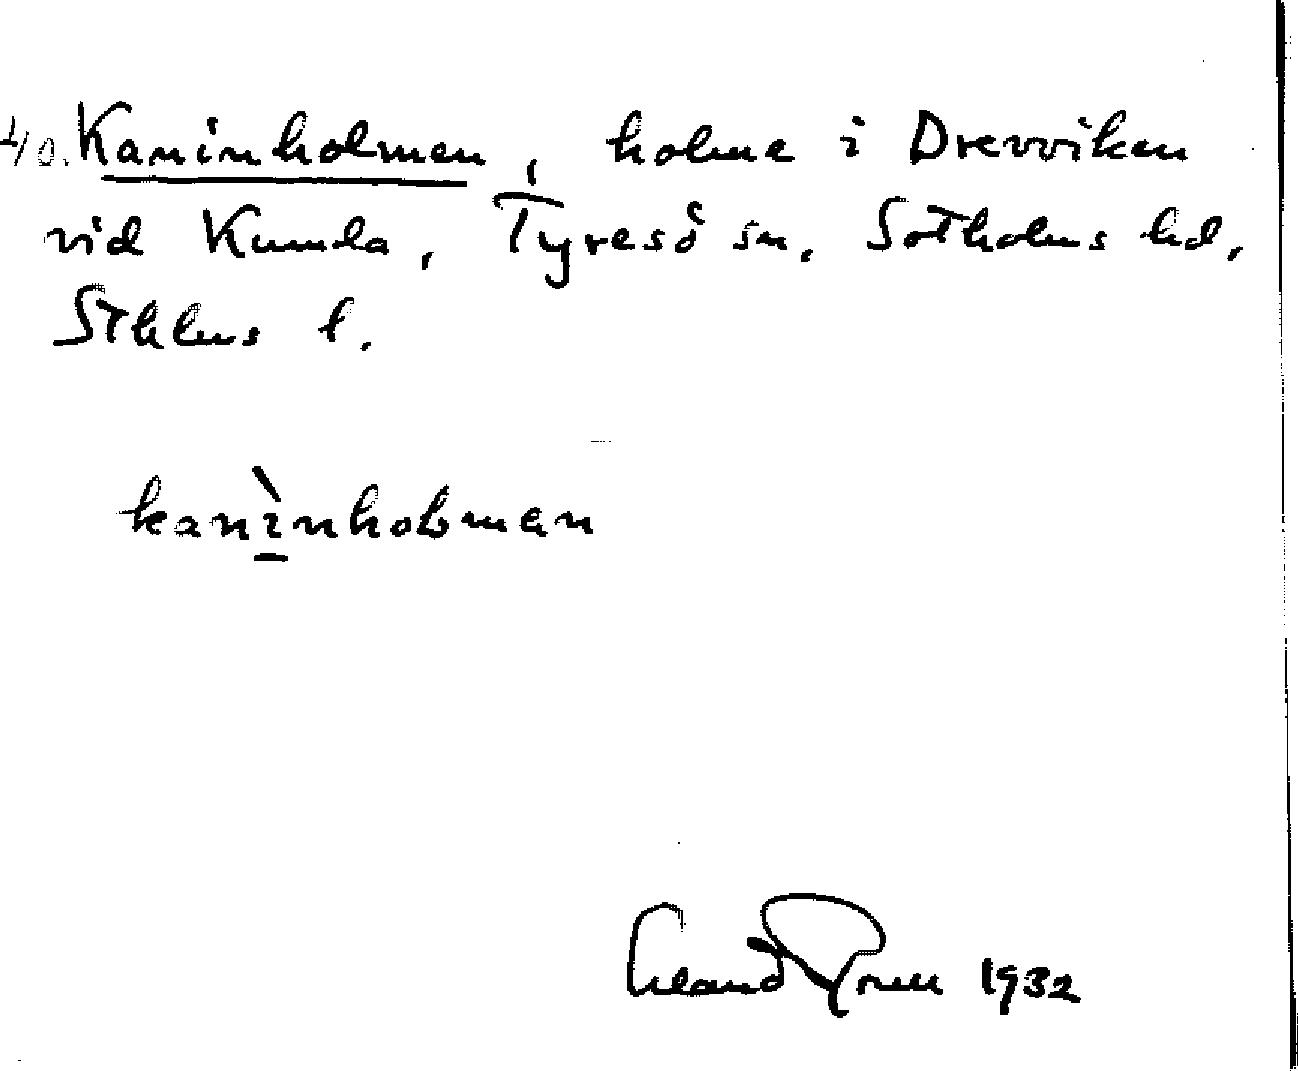 1/0. Kaninholmen, holme i Drevviken
vid Kumla, Tyresö sn, Sotholms hd,
Sthlms l.
kanìnholman
1932